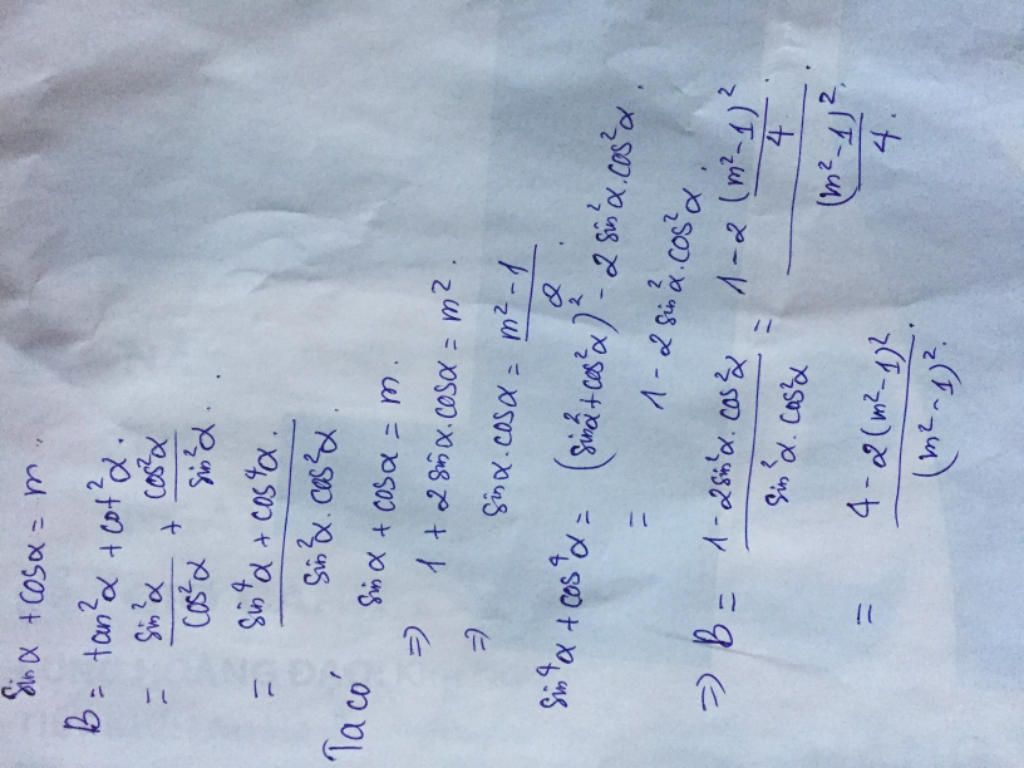 sinα + cosα = m.
B = tan²α + cot²α.
= sin²α/cos²α + cos²α/sin²α.
= (sin⁴α + cos⁴α)/(sin²α.cos²α).
Ta có sinα + cosα = m.
=> 1 + 2sinα.cosα = m².
=> sinα.cosα = (m² - 1)/2.
sin⁴α + cos⁴α = (sin²α + cos²α)² - 2sin²α.cos²α.
= 1 - 2sin²α.cos²α.
=> B = (1 - 2sin²α.cos²α)/(sin²α.cos²α) = (1 - 2(m² - 1)²/4)/((m² - 1)²/4).
= (4 - 2(m² - 1)²)/(m² - 1)².